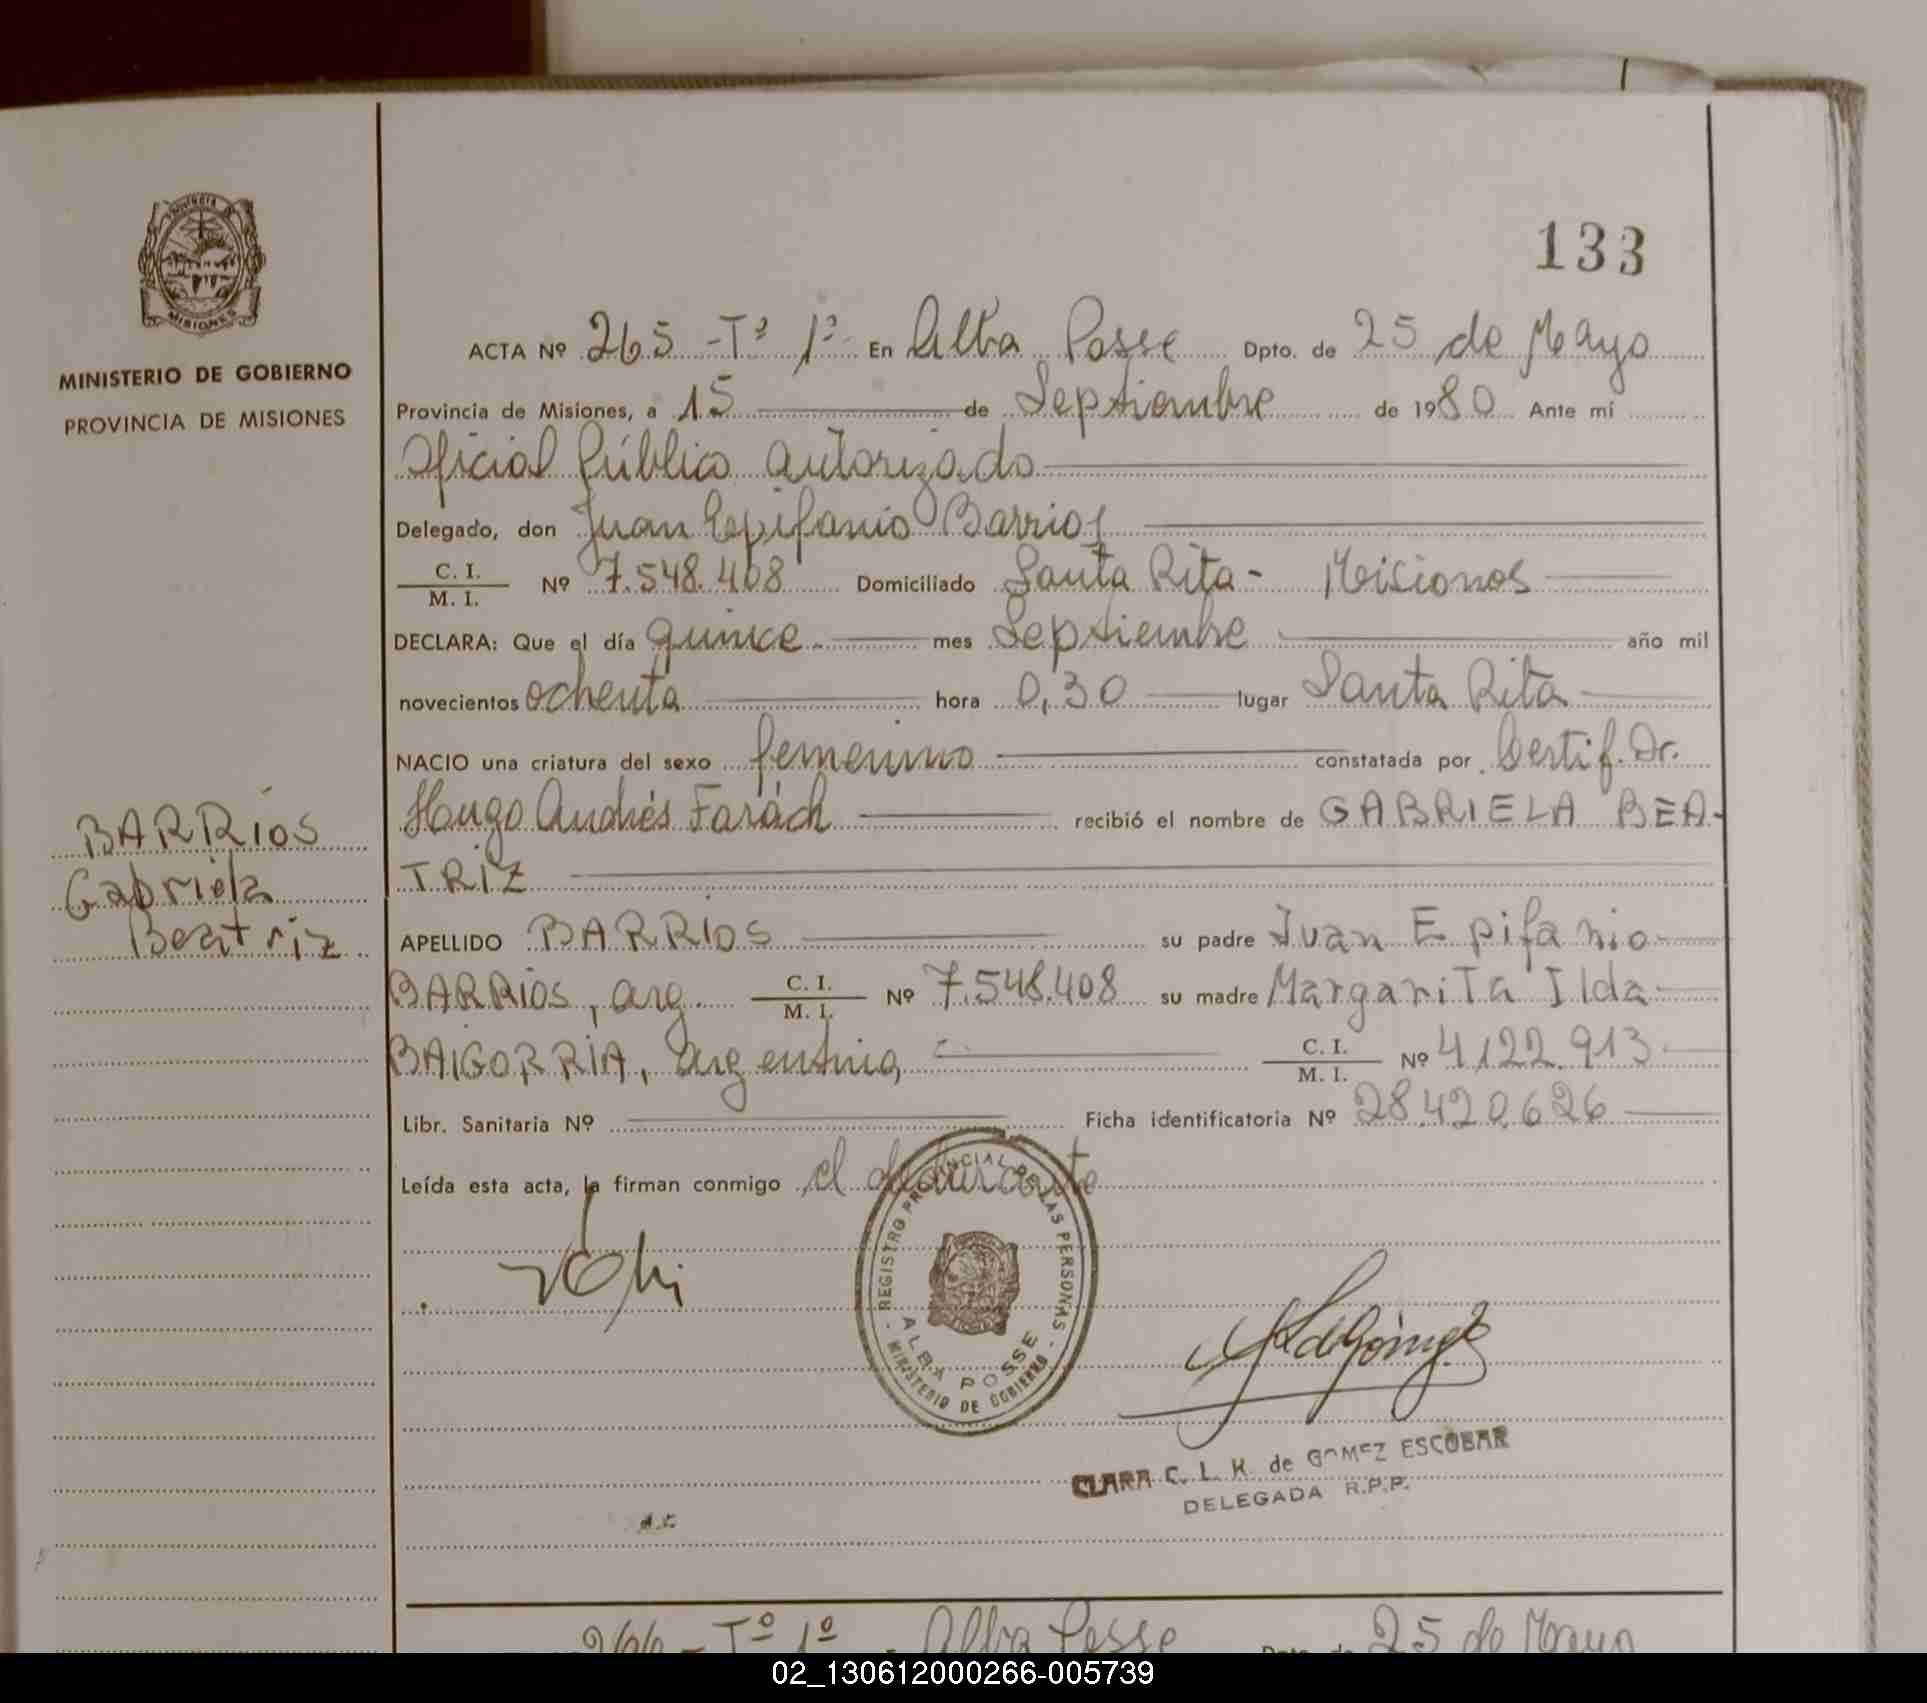 133
PROVINCIA DE
MISIONES
MINISTERIO DE GOBIERNO
PROVINCIA DE MISIONES
BARRIOS
Gabriela
Beatriz
ACTA Nº 265 - Tº 1º En Alba Posse Dpto. de 25 de Mayo
Provincia de Misiones, a 15 de Septiembre de 1980 Ante mí
Oficial Público Autorizado
Delegado, don Juan Epifanio Barrios
C. I. / M. I. Nº 7.548.408 Domiciliado Santa Rita - Misiones
DECLARA: Que el día quince mes Septiembre año mil
novecientos ochenta hora 0,30 lugar Santa Rita
NACIO una criatura del sexo femenino constatada por Certif. Dr.
Hugo Andrés Farách recibió el nombre de GABRIELA BEA-
TRIZ
APELLIDO BARRIOS su padre Juan Epifanio
BARRIOS, arg. C. I. / M. I. Nº 7.548.408 su madre Margarita Ilda
BAIGORRIA, argentina, C. I. / M. I. Nº 4.122.913
Libr. Sanitaria Nº Ficha identificatoria Nº 28.420.626
Leída esta acta, la firman conmigo el declarante
REGISTRO PROVINCIAL DE LAS PERSONAS
ALBA POSSE
MINISTERIO DE GOBIERNO
CLARA C. L. K. de GOMEZ ESCOBAR
DELEGADA R.P.P.
266 - Tº 1º - Alba Posse Dpto. de 25 de Mayo
02_130612000266-005739